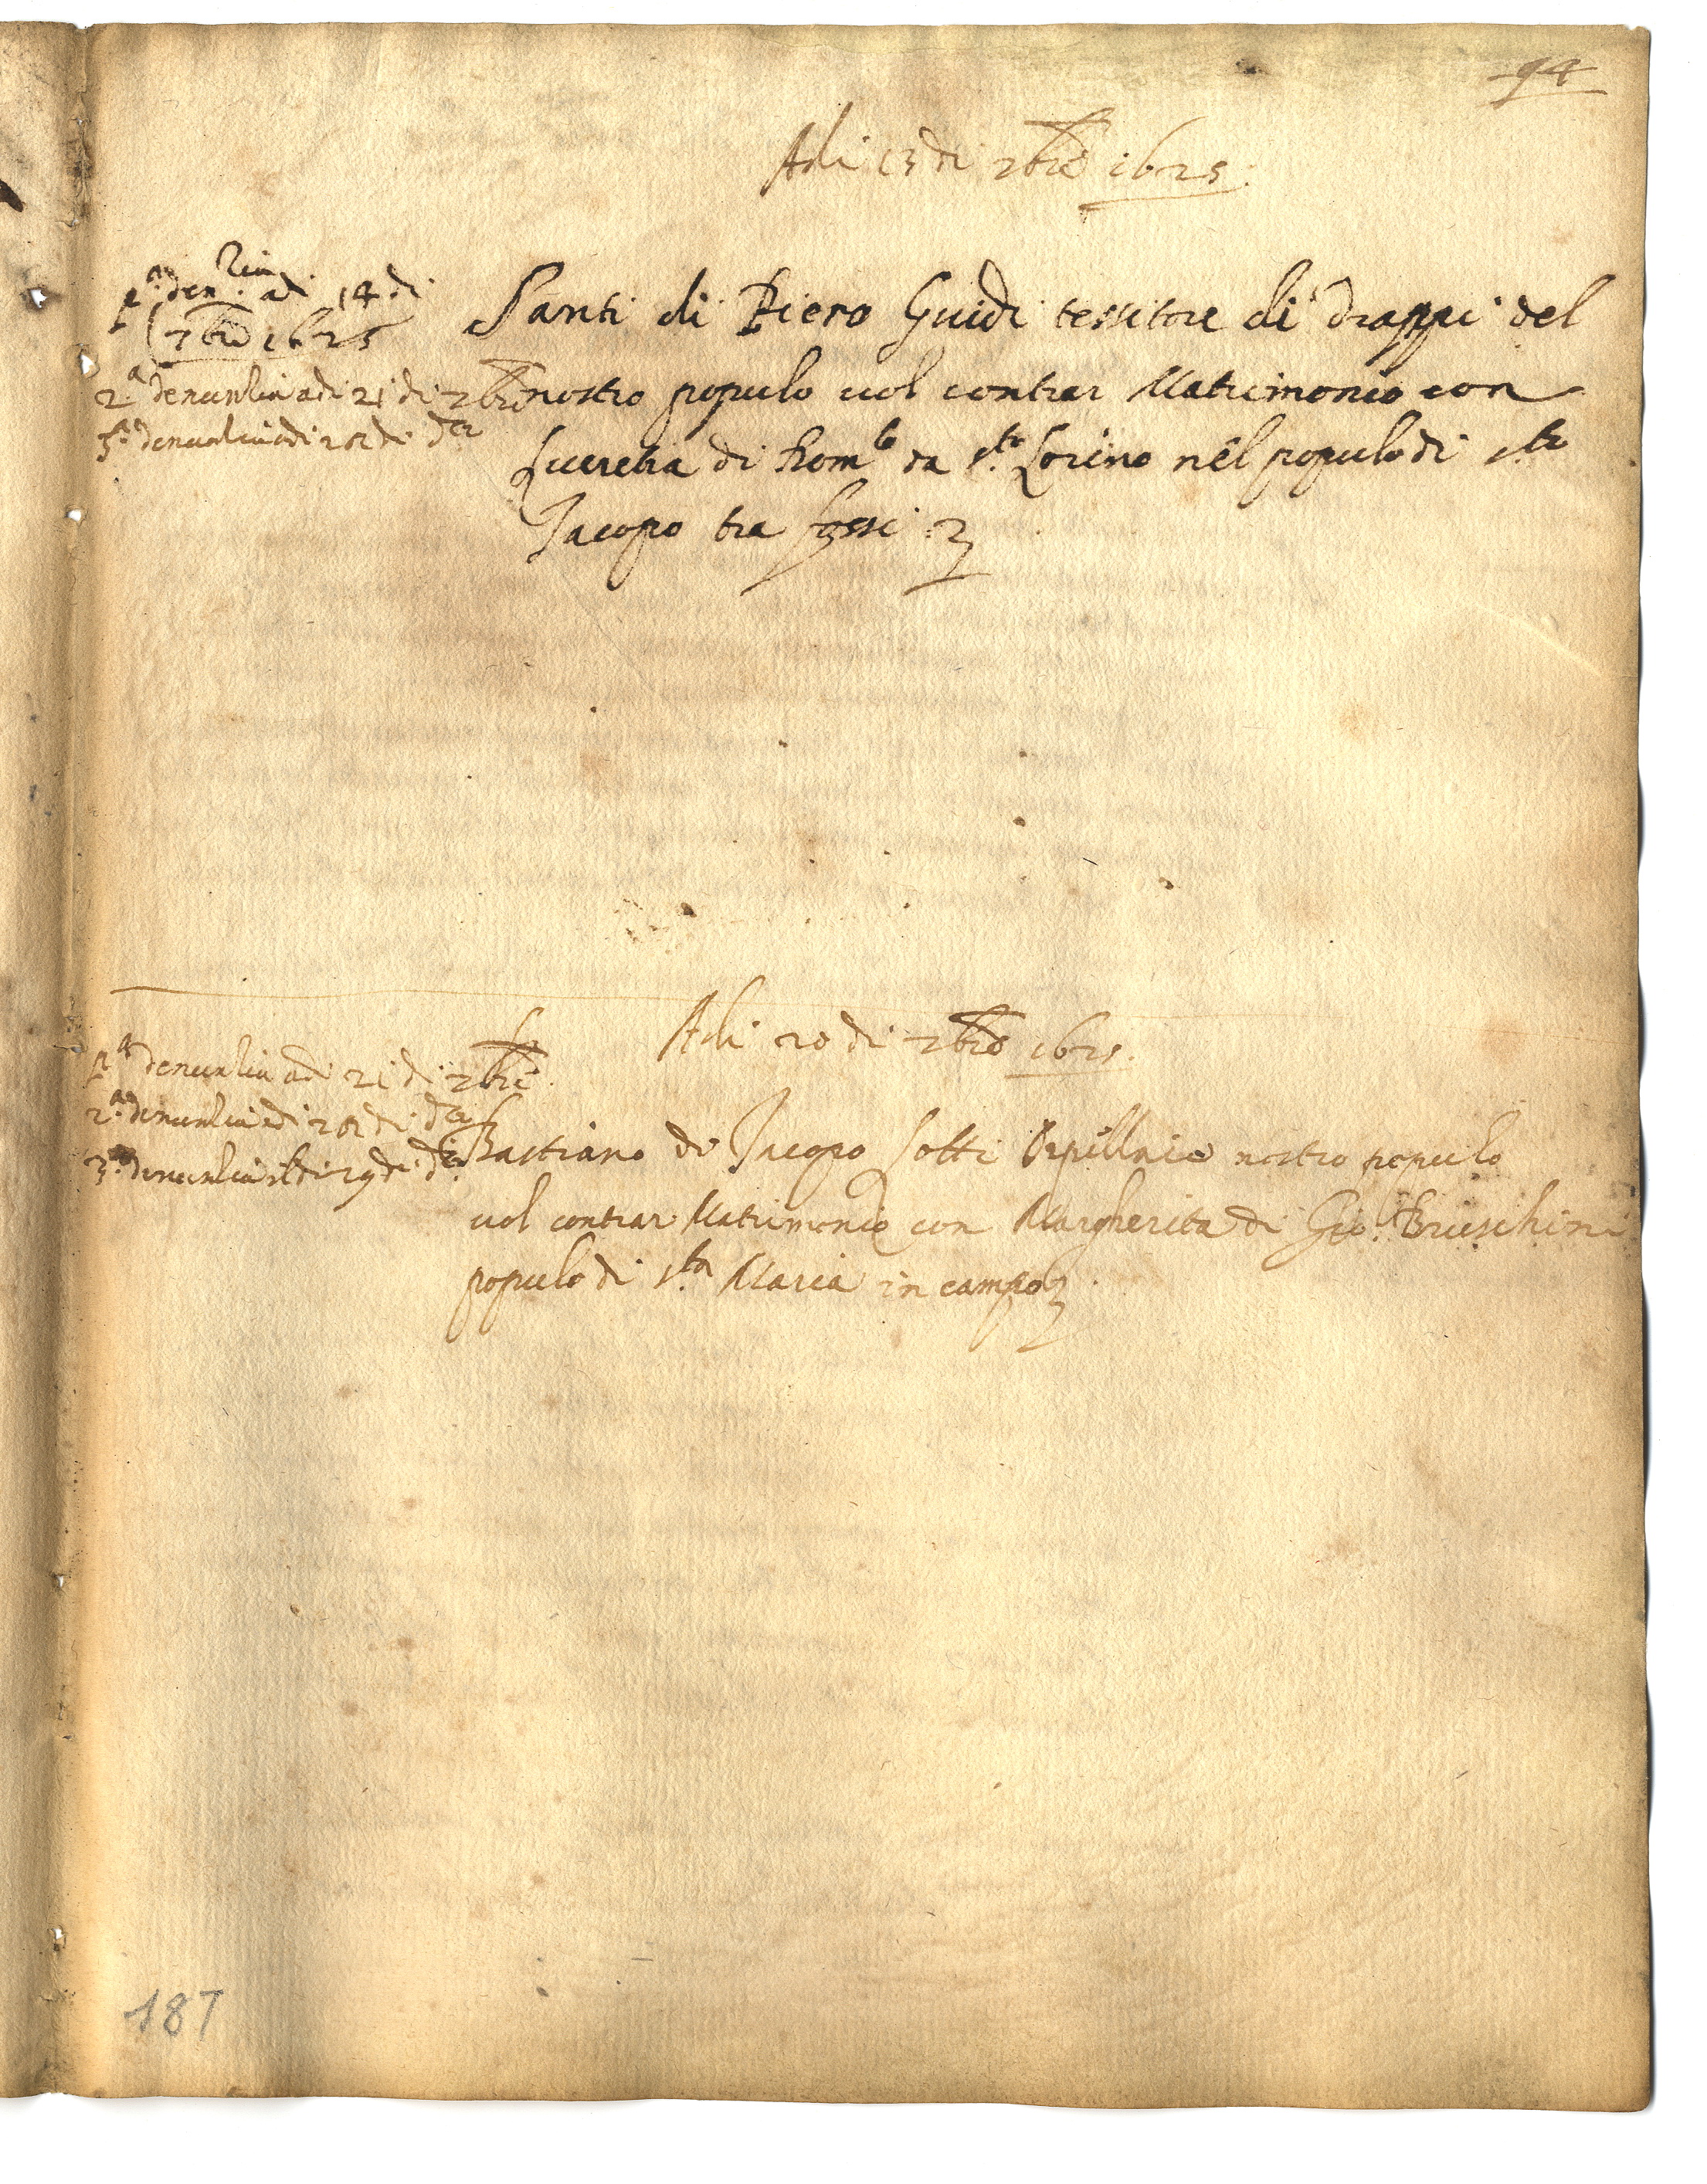 94
Adi 13 di 7bre 1625.
p.a den.tia adi 14 di
7bre 1625
2.a denuntia adi 21 di 7bre
3.a denuntia adi 28 di d.o
Santi di Piero Guidi tessitore di drappi del
nostro populo vol contrar Matrimonio con
Lucretia di Rom.lo da s.to Lorino nel populo di s.to
Jacopo tra fossi
Adi 20 di 7bre 1625.
p.a denuntia adi 21 di 7bre.
2.a denuntia adi 28 di d.o
3.a denuntia adi 29 di d.o
Bastiano di Jacopo Sotti nostro populo
vol contrar Matrimonio con Margherita di Gio. Bruschini
populo di s.ta Maria in campo
187